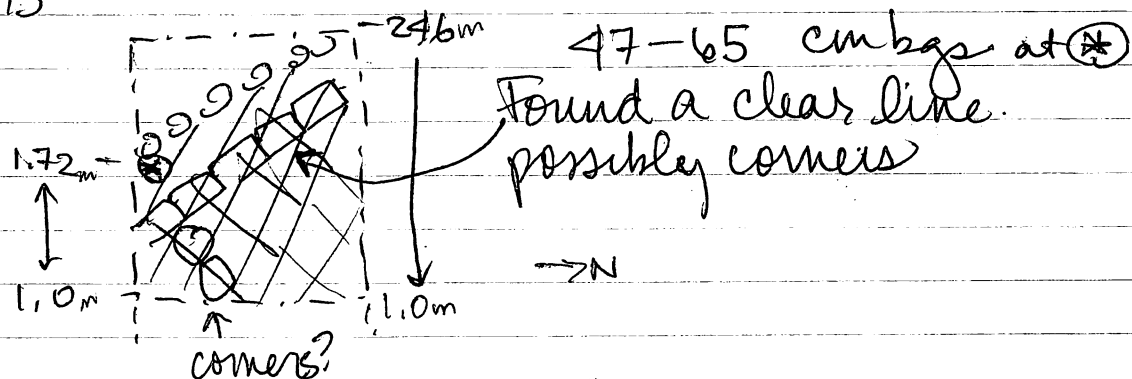 2.46m
47-65 cmbgs at ⊛
Found a clear line
possibly corners
1.72m
→N
1.0m
1.0m
corners?